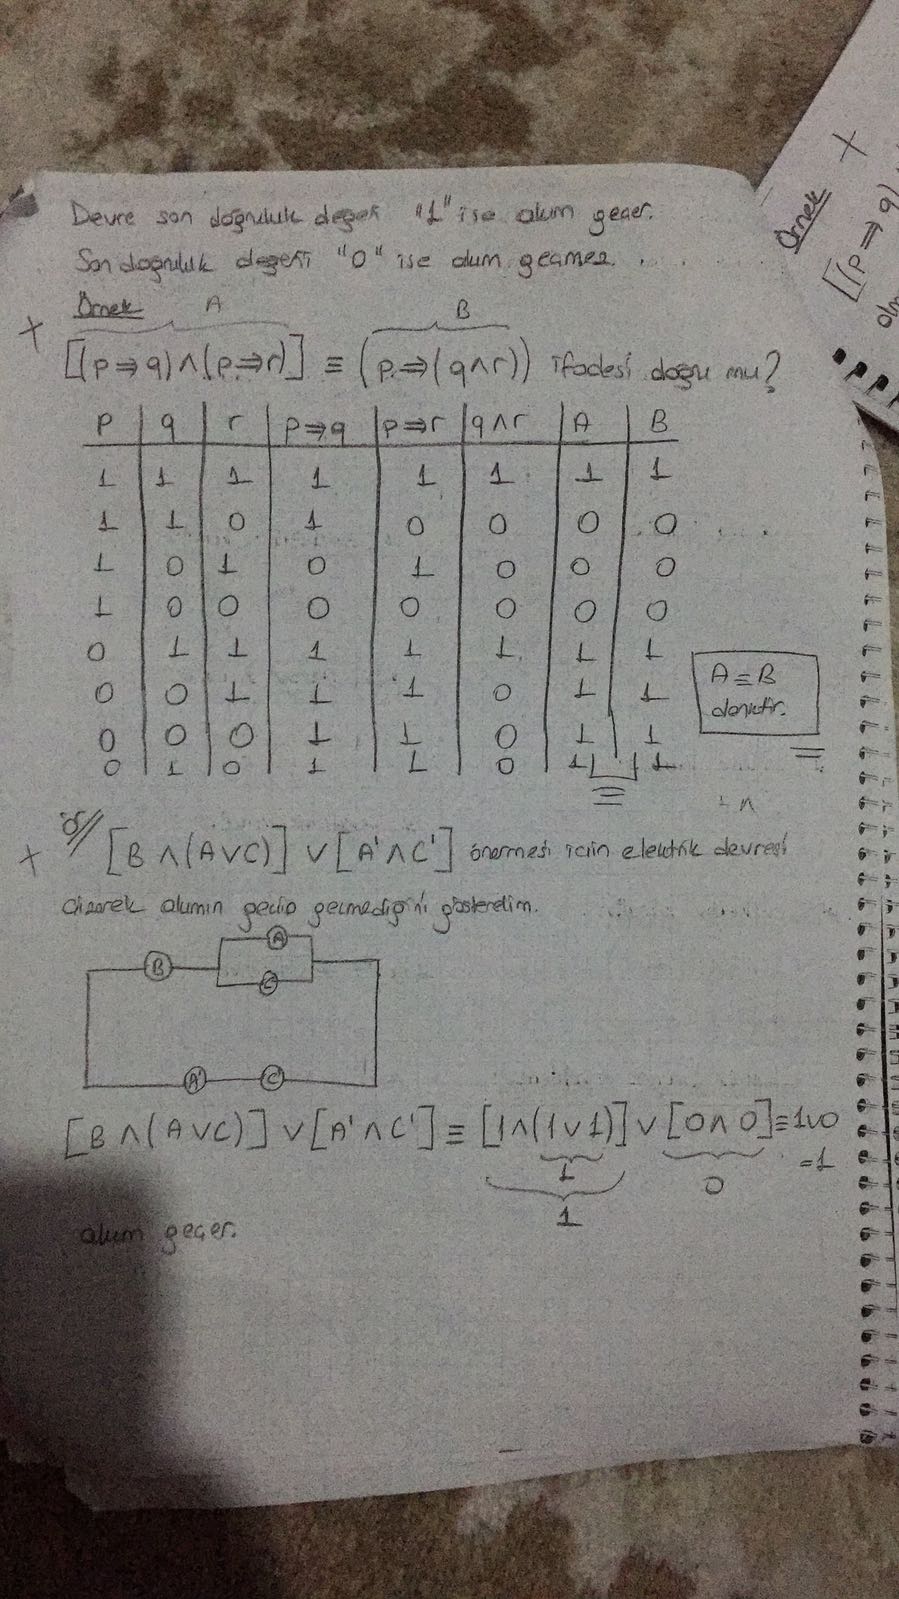 Devre son doğruluk değeri "1" ise akım geçer.
Son doğruluk değeri "0" ise akım geçmez.
Örnek A B
[(p⇒q)∧(p⇒r)] ≡ (p⇒(q∧r)) ifadesi doğru mu?
p q r p⇒q p⇒r q∧r A B
1 1 1 1 1 1 1 1
1 1 0 1 0 0 0 0
1 0 1 0 1 0 0 0
1 0 0 0 0 0 0 0
0 1 1 1 1 1 1 1
0 0 1 1 1 0 1 1
0 0 0 1 1 0 1 1
0 1 0 1 1 0 1 1
≡
A≡B
denktir.
ör// [B∧(A∨C)] ∨ [A'∧C'] önermesi için elektrik devresi
çizerek akımın geçip geçmediğini gösterelim.
A
B
C
A' C'
[B∧(A∨C)] ∨ [A'∧C'] ≡ [1∧(1∨1)] ∨ [0∧0] ≡ 1∨0
1 0 =1
1
akım geçer.
Örnek
[(p⇒q)